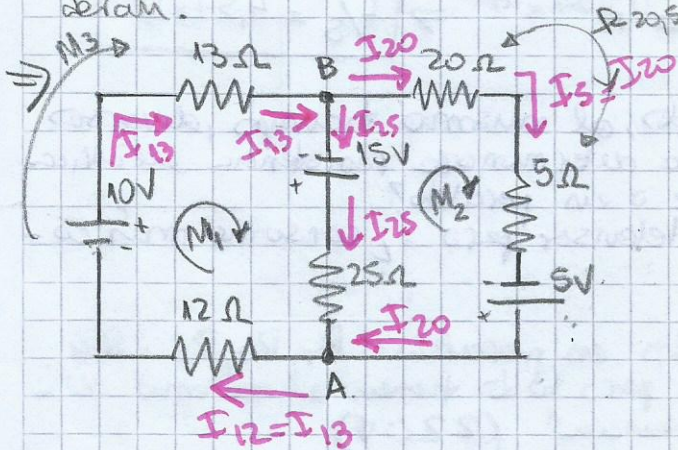 deran.
M3
13Ω
B
I20
20Ω
R20,5
I5=I20
I13
I13
I25
15V
+
5Ω
10V
+
-
M1
M2
I25
25Ω
-
5V
+
12Ω
I20
A.
I12=I13